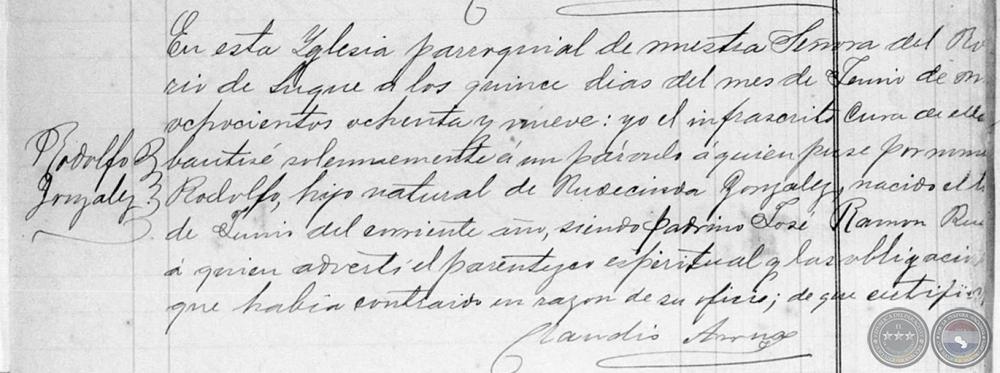 En esta Yglesia parroquial de nuestra Señora del Ro
rio de Luque á los quince dias del mes de Junio de m
ochocientos ochenta y nueve: yo el infrascrito Cura de ella
Rodolfo
Gonzalez
bautisé solemnemente á un párvulo á quien puse por nom
Rodolfo, hijo natural de Rudecinda Gonzalez, nacido el
de Junio del corriente año, siendo padrino José Ramon
á quien advertí el parentesco espiritual y las obligacio
que habia contraido en razon de su oficio; de que certifi
Claudio